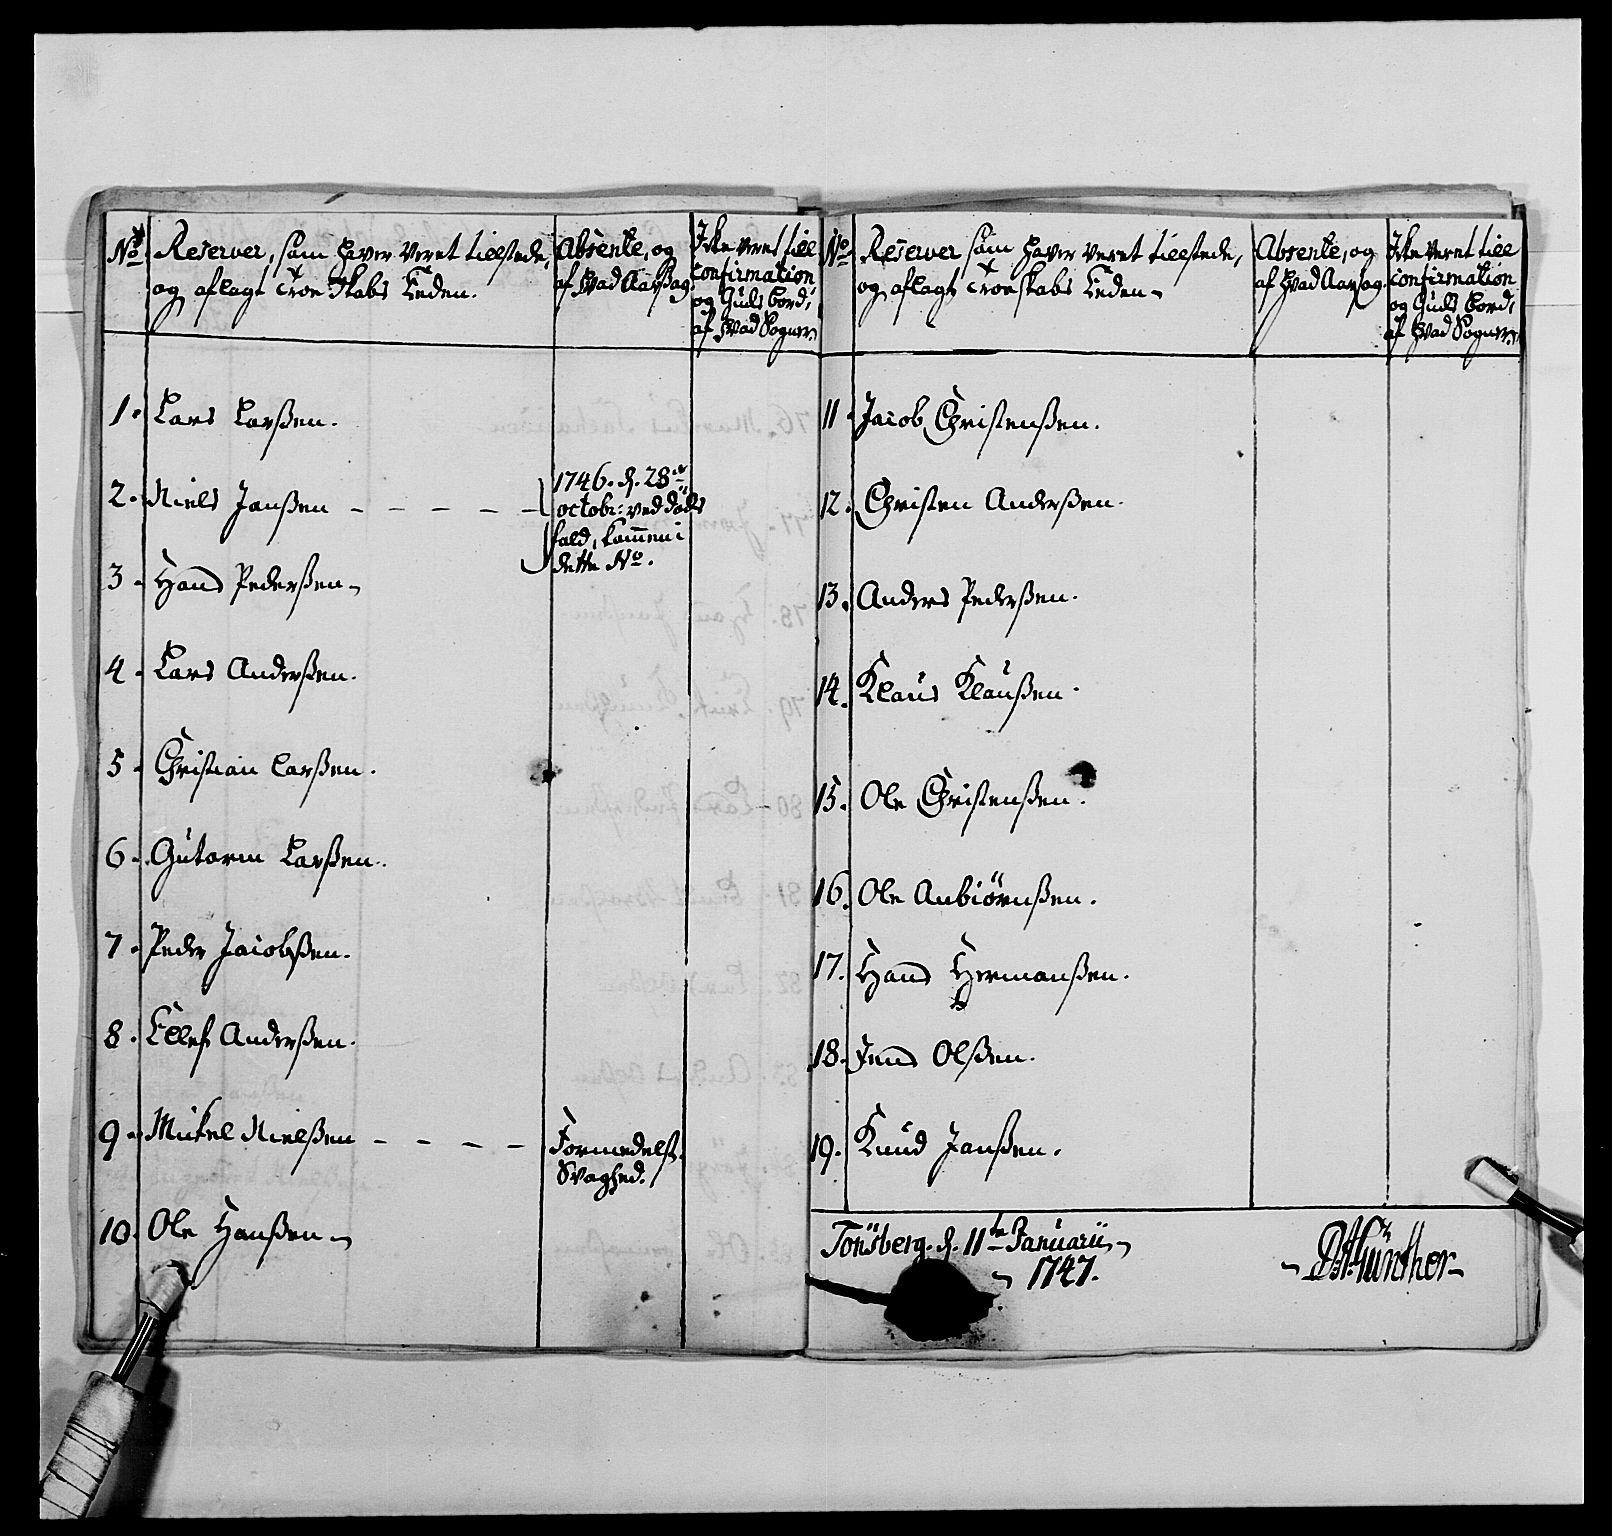 No
Reserver, som haver veret tillstede,
og aflagt Troeskabs Eeden.
Absente, og
af hvad Aarsag
Ikke veret till
Confirmation
og Guds bord,
af hvad Sogner.
1. Lars Larßen.
2. Niels Janßen - - - - -
1746. d. 28de
octobr: ved döds
fald, kommen i
dette No.
3. Hans Pederßen
4. Lars Anderßen.
5. Christian Larßen.
6. Gutorm Larßen.
7. Peder Jacobßen.
8. Ellef Anderßen.
9. Mickel Nielßen - - - -
Formedelst
Svaghed.
10. Ole Hanßen
No
Reserver, som haver veret tillstede,
og aflagt Troeskabs Eeden
Absente, og
af hvad Aarsag
Ikke veret till
Confirmation
og Guds bord,
af hvad Sogner.
11. Jacob Christenßen.
12. Christen Anderßen.
13. Anders Pederßen.
14. Klaus Klaußen.
15. Ole Christenßen.
16. Ole Anbiörnßen.
17. Hans Hermanßen.
18. Jens Olßen.
19. Knud Janßen.
Tönsberg. d. 11te Januarii
1747.
Günther